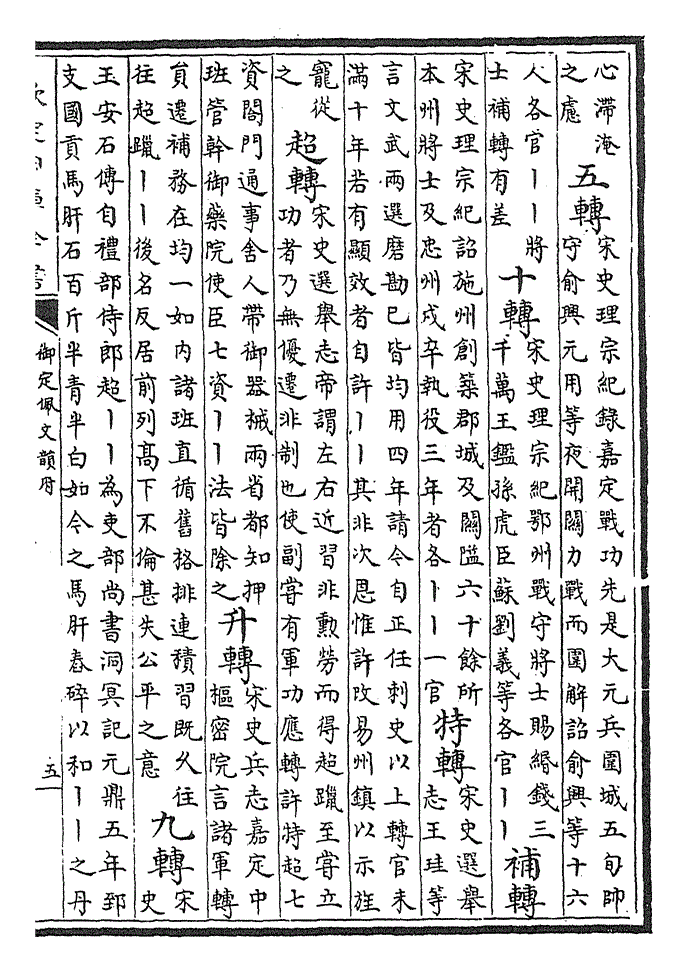 心滯淹
之慮
五轉
宋史理宗紀錄嘉定戰功先是大元兵圍城五旬帥
守俞興元用等夜開關力戰而圍解詔俞興等十六
人各官丨丨將
士補轉有差
十轉
宋史理宗紀鄂州戰守將士賜緡錢三
千萬王鑑孫虎臣蘇劉義等各官丨丨
補轉
宋史理宗紀詔施州創築郡城及關隘六十餘所
本州將士及忠州戍卒執役三年者各丨丨一官
特轉
宋史選舉
志王珪等
言文武兩選磨勘已皆均用四年請令自正任刺史以上轉官未
滿十年若有顯效者自許丨丨其非次恩惟許改易州鎮以示旌
寵從
之
超轉
宋史選舉志帝謂左右近習非勳勞而得超躐至嘗立
功者乃無優遷非制也使副嘗有軍功應轉許特超七
資閤門通事舍人帶御器械兩省都知押
班管幹御藥院使臣七資丨丨法皆除之
升轉
宋史兵志嘉定中
樞密院言諸軍轉
員遷補務在均一如内諸班直循舊格排連積習既久往
往超躐丨丨後名反居前列高下不倫甚失公平之意
九轉
宋
史
王安石傳自禮部侍郎超丨丨為吏部尚書洞冥記元鼎五年郅
支國貢馬肝石百斤半青半白如今之馬肝舂碎以和丨丨之丹
欽定四庫全書
御定佩文韻府
五